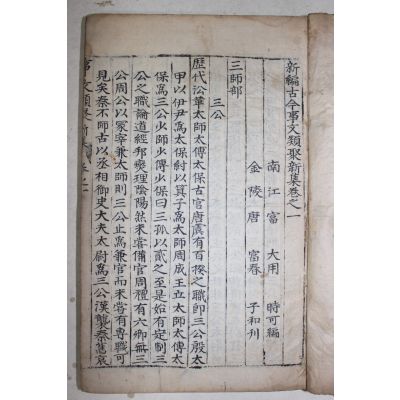 新編古今事文類聚新集卷之一
南江富 大用 時可編
金陵唐 富春 子和刊
三師部
三公
歷代沿革太師太傅太保古官唐虞有百揆之職即三公殷太
甲以伊尹爲太保紂以箕子爲太師周成王立太師太傅太
保爲三公少師少傅少保曰三孤以貳之至是始有定制三
公之職論道經邦燮理陰陽然未嘗備官周禮有六卿無三
公周公以冢宰兼太師則三公止爲兼官而未嘗有專職可
見矣秦不師古以丞相御史大夫太尉爲三公漢襲秦舊哀
事文類聚新